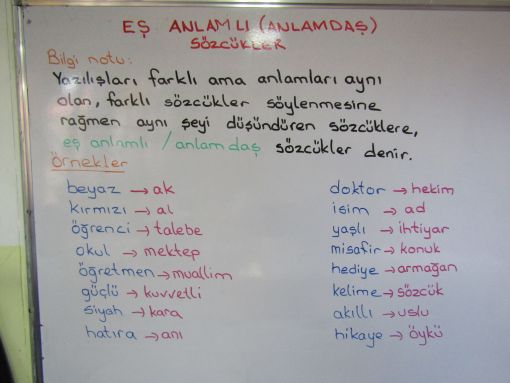 EŞ ANLAMLI (ANLAMDAŞ)
SÖZCÜKLER
Bilgi notu:
Yazılışları farklı ama anlamları aynı
olan, farklı sözcükler söylenmesine
rağmen aynı şeyi düşündüren sözcüklere,
eş anlamlı / anlamdaş sözcükler denir.
Örnekler
beyaz → ak
kırmızı → al
öğrenci → talebe
okul → mektep
öğretmen → muallim
güçlü → kuvvetli
siyah → kara
hatıra → anı
doktor → hekim
isim → ad
yaşlı → ihtiyar
misafir → konuk
hediye → armağan
kelime → sözcük
akıllı → uslu
hikaye → öykü